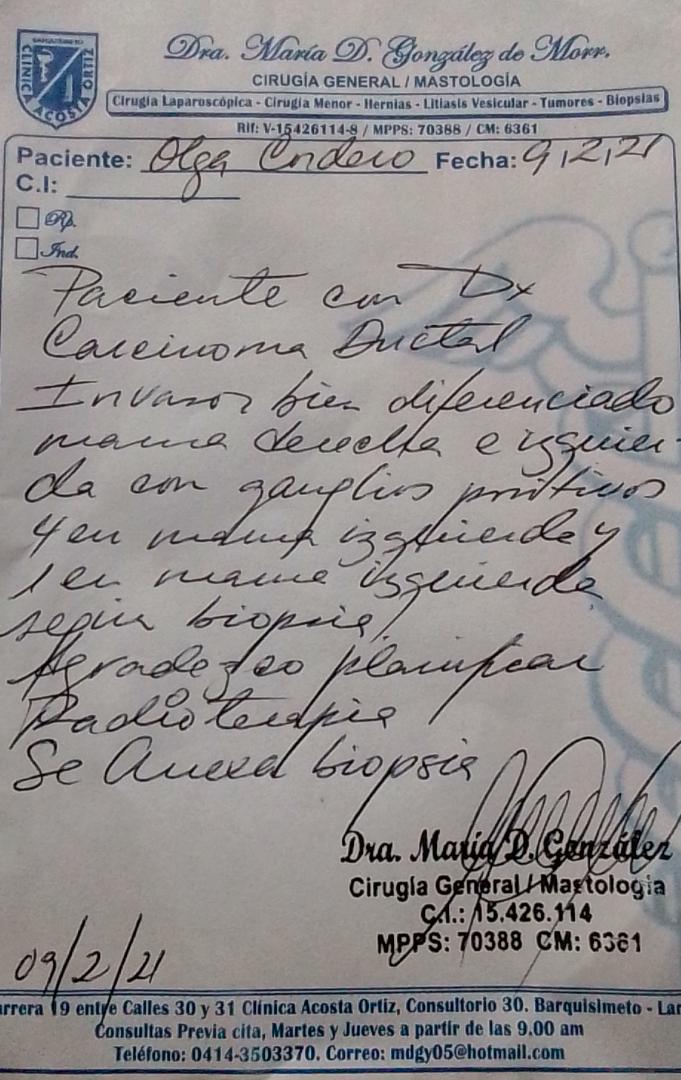 BARQUISIMETO
CLINICA ACOSTA ORTIZ
Dra. María D. González de Morr.
CIRUGÍA GENERAL / MASTOLOGÍA
Cirugía Laparoscópica - Cirugía Menor - Hernias - Litiasis Vesicular - Tumores - Biopsias
Rif: V-15426114-8 / MPPS: 70388 / CM: 6361
Paciente: Olga Cordero Fecha: 9/2/21
C.I:
Rp.
Ind.
Paciente con Dx
Carcinoma Ductal
Invasor bien diferenciado
mama derecha e izquier-
da con ganglios positivos
4 en mama izquierda y
1 en mama izquierda
según biopsia,
Agradezco planificar
Radioterapia
Se Anexa biopsia
Dra. María D. González
Cirugía General / Mastología
C.I.: 15.426.114
MPPS: 70388 CM: 6361
09/2/21
arrera 19 entre Calles 30 y 31 Clínica Acosta Ortiz, Consultorio 30. Barquisimeto - Lar
Consultas Previa cita, Martes y Jueves a partir de las 9.00 am
Teléfono: 0414-3503370. Correo: mdgy05@hotmail.com